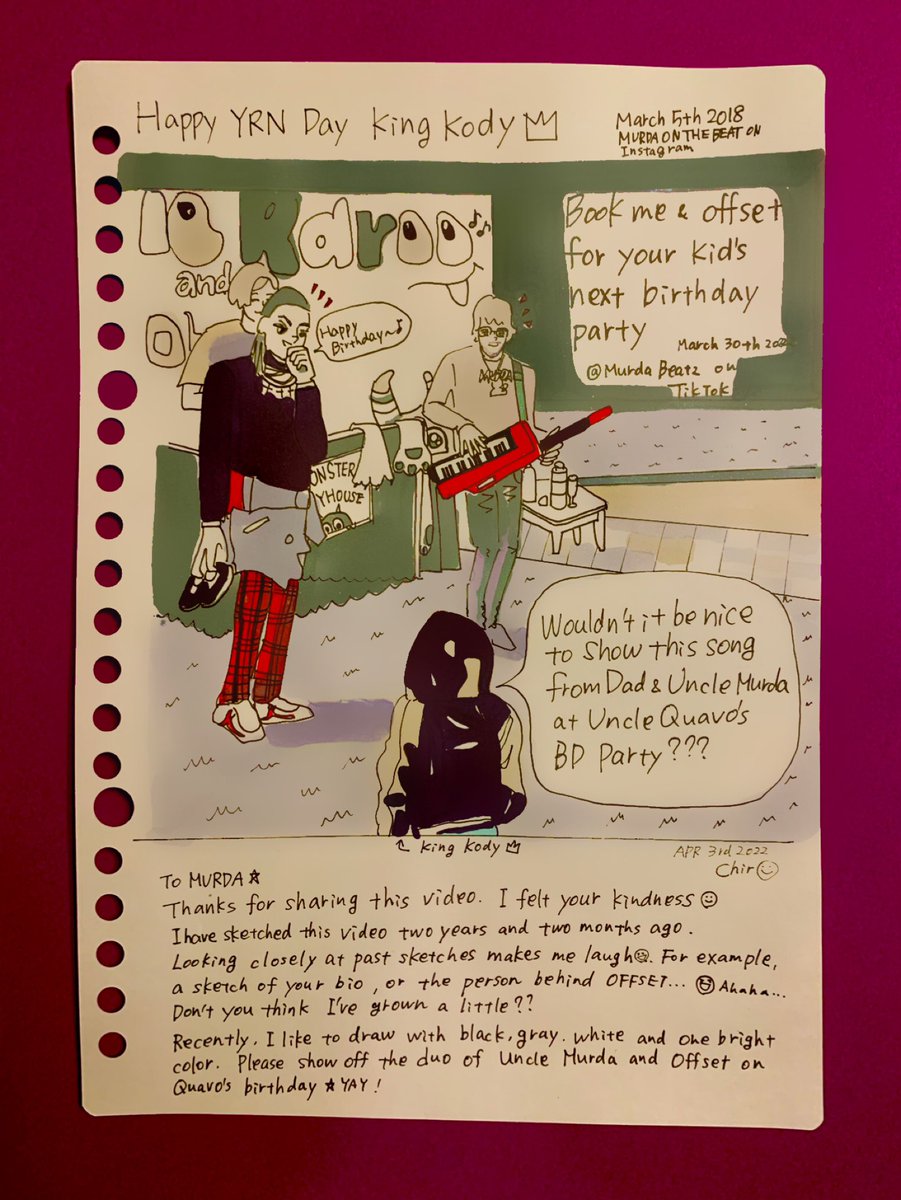 Happy YRN Day King Kody
March 5th 2018
MURDA ON THE BEAT ON
Instagram
and
Book me & offset
for your kid's
next birthday
party
March 30th
@Murda Beatz on
TikTok
Happy
Birthday~♪
ONSTER
YHOUSE
Wouldn't it be nice
to show this song
from Dad & Uncle Murda
at Uncle Quavo's
BD Party???
King Kody
APR 3rd 2022
Chir☺
To MURDA☆
Thanks for sharing this video. I felt your kindness☺
I have sketched this video two years and two months ago.
Looking closely at past sketches makes me laugh. For example,
a sketch of your bio, or the person behind OFFSET... Ahaha...
Don't you think I've grown a little??
Recently, I like to draw with black, gray. white and one bright
color. Please show off the duo of Uncle Murda and Offset on
Quavo's birthday ☆YAY!